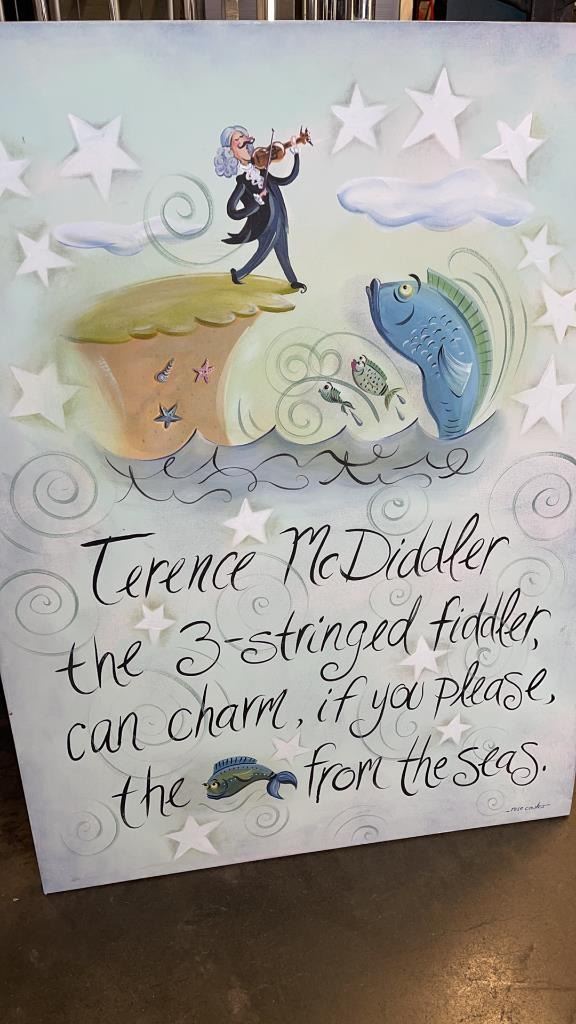 Terence McDiddler
the 3-stringed fiddler,
can charm, if you please,
the from the seas.